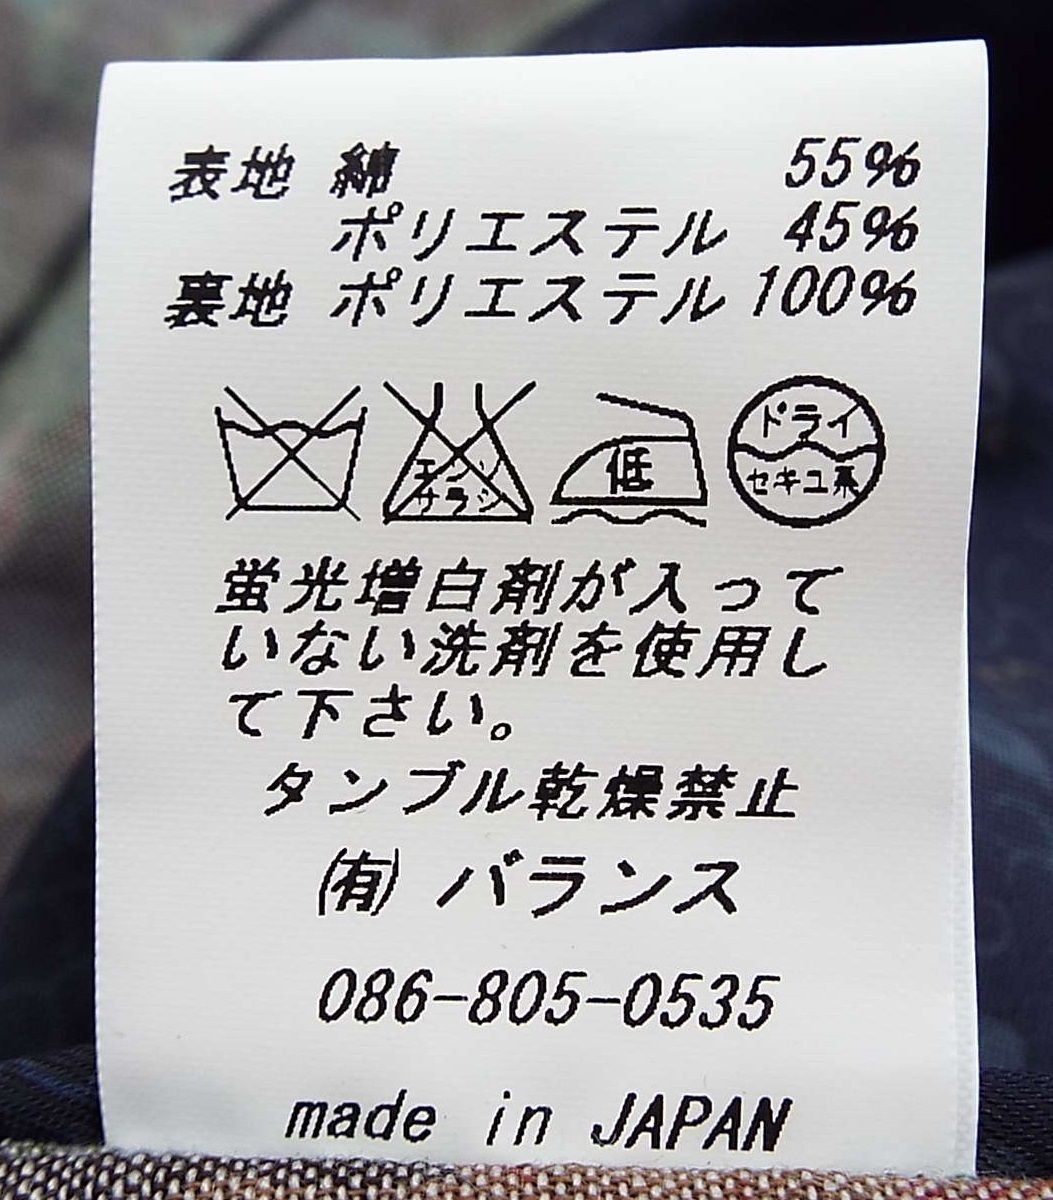 表地 綿 55%
ポリエステル 45%
裏地 ポリエステル 100%
エンソ
サラシ
低
ドライ
セキユ系
蛍光増白剤が入って
いない洗剤を使用し
て下さい。
タンブル乾燥禁止
(有) バランス
086-805-0535
made in JAPAN